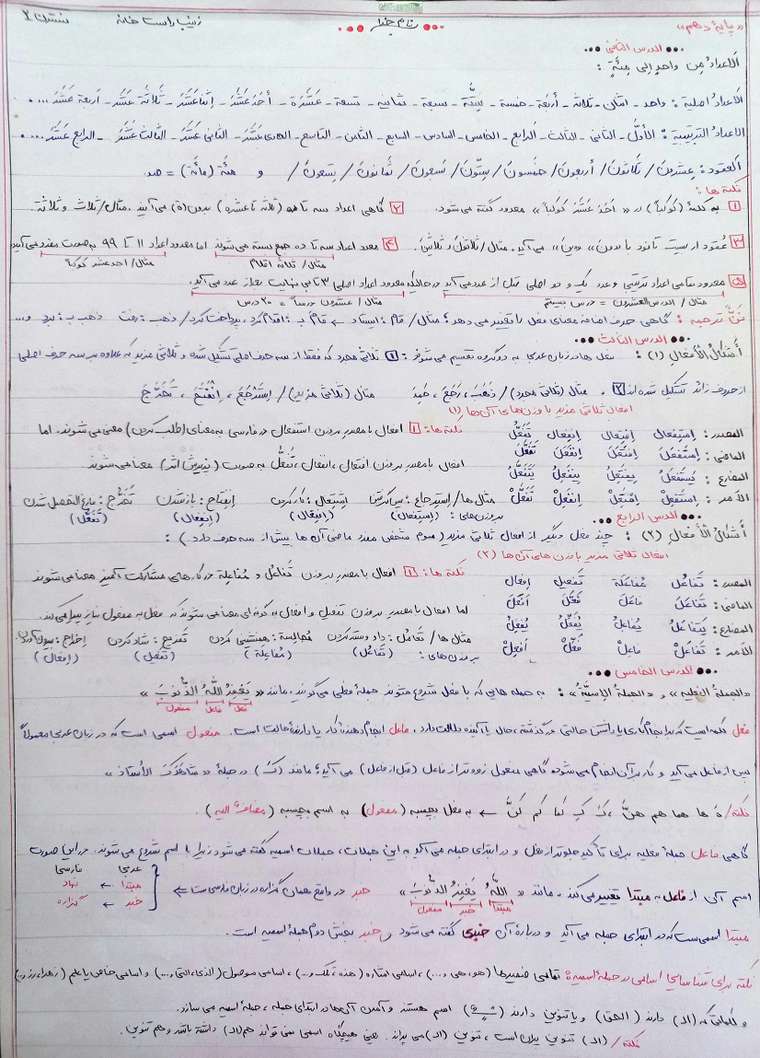 «پایهٔ دهم» بنام خدا زینب راست خانه
الدرس الثانی
اَلاَعدادُ مِن واحِدٍ إلی مِئَةٍ :
الاعدادُ اصلیة : واحد - اثنان - ثلاثة - أربَعة - خمسة - سِتَّة - سبعة - ثمانیة - تسعة - عَشَرَة - أحَدَ عَشَرَ - إثنا عَشَرَ - ثَلاثَةَ عَشَرَ - أربعة عَشَرَ ...
الاعدادُ الترتیبیة : الأوَّل - الثانی - الثالث - الرابع - الخامس - السادس - السابع - الثامن - التاسع - العاشر - الحادی عَشَرَ - الثانی عَشَرَ - الثالث عَشَرَ - الرابع عَشَرَ ...
العقود : عِشرونَ / ثَلاثونَ / أربعونَ / خَمسونَ / سِتّونَ / سَبعونَ / ثَمانونَ / تِسعونَ / و مِئَة (مائَة) = صد
نکته ها :
1 به کلمهٔ (کوکباً) در «أحَدَ عَشَرَ کَوکَباً» معدود گفته می‌شود. 2 گاهی اعداد سه تا ده (ثلاثة تا عشرة) بدون (ة) می‌آیند. مثال/ ثلاث و ثلاثة.
3 عقود از بیست تا نود با «ون» «ین» می‌آید. مثال/ ثلاثونَ، ثلاثینَ. 4 معدود اعداد سه تا ده جمع بسته می‌شوند اما معدود اعداد 11 تا 99 به صورت مفرد می‌آید
مثال/ ثلاثة أقلام مثال/ احد عشر کوکباً
5 معدود تمامی اعداد ترتیبی و عدد یک و دو اصلی قبل از عدد می‌آید در حالیکه معدود اعداد اصلی 3 تا بی نهایت بعد از عدد می‌آید.
مثال/ الدرس العشرون = درس بیستم مثال/ عشرون درساً = 20 درس
فنّ ترجمه : گاهی حرف اضافه معنای فعل را تغییر می دهد؛ مثال/ قام : ایستاد ← قام بـ : اقدام کرد، پرداخت کرد/ ذهب : رفت ذهب بـ : برد و...
الدرس الثالث
أشکالُ الأفعالِ (1) : فعل ها در زبان عربی به دو گروه تقسیم می‌شوند : 1 ثلاثی مجرد که فقط از سه حرف اصلی تشکیل شده و ثلاثی مزید که علاوه بر سه حرف اصلی
از حروف زائد تشکیل شده اند 2. مثال (ثلاثی مجرد) / ذَهَبَ، رَجَعَ، حَمِدَ مثال (ثلاثی مزید) / اِستَرجَعَ، اِنفَتَحَ، تَخَرَّجَ
افعال ثلاثی مزید با وزن‌های آن‌ها (1)
المصدر : اِستِفعال اِفتِعال اِنفِعال تَفَعُّل نکته ها : 1 افعال با مصدر بر وزن استفعال در فارسی به معنای (طلب کردن) معنی می‌شوند، اما
الماضی : اِستَفعَلَ اِفتَعَلَ اِنفَعَلَ تَفَعَّلَ
المضارع : یَستَفعِلُ یَفتَعِلُ یَنفَعِلُ یَتَفَعَّلُ افعال با مصدر بر وزن افتعال، انفعال، تفعُّل به صورت (پذیرش اثر) معنا می‌شوند
الأمر : اِستَفعِلْ اِفتَعِلْ اِنفَعِلْ تَفَعَّلْ مثال ها / اِسترجاع : پس گرفتن اِشتِغال : کار کردن اِنفِتاح : باز شدن تَخَرُّج : فارغ التحصیل شدن
بر وزن های : (اِستِفعال) (اِفتِعال) (اِنفِعال) (تَفَعُّل)
الدرس الرابع
أشکالُ الأفعالِ (2) : چند فعل دیگر از افعال ثلاثی مزید (سوم شخص مفرد ماضی آن ها بیش از سه حرف دارد.) :
افعال ثلاثی مزید با وزن های آن ها (2)
المصدر : تَفاعُل مُفاعَلَة تَفعیل إفعال نکته ها : 1 افعال با مصدر بر وزن تَفاعُل و مُفاعَلة در کارهای مشارکت آمیز معنا می شوند
الماضی : تَفاعَلَ فاعَلَ فَعَّلَ أفعَلَ اما افعال با مصدر بر وزن تفعیل و افعال به گونه ای معنا می شوند که فعل به مفعول نیاز پیدا می‌کند.
المضارع : یَتَفاعَلُ یُفاعِلُ یُفَعِّلُ یُفعِلُ
الأمر : تَفاعَلْ فاعِلْ فَعِّلْ أفعِلْ مثال ها / تَعامُل : داد و ستد کردن مُجالِسة : همنشینی کردن تفریح : شاد کردن إخراج : بیرون آوردن
بر وزن های : (تَفاعُل) (مُفاعَلَة) (تَفعیل) (إفعال)
الدرس الخامس
«الجملة الفعلیة» و «الجملة الإسمیّة» : به جمله هایی که با فعل شروع می‌شوند جملهٔ فعلی می‌گویند. مانند «یَغفِرُ اللّهُ الذُّنوبَ»
فعل فاعل مفعول
فعل کلمه ایست که بر انجام کاری یا داشتن حالتی در گذشته، حال یا آینده دلالت دارد. فاعل انجام دهندهٔ کار یا دارندهٔ حالت است. مفعول اسمی است که در زبان عربی معمولاً
پس از فاعل می‌آید و کار بر آن انجام می شود. گاهی مفعول زودتر از فاعل (قبل از فاعل) می آید؛ مانند (کَ) در جملهٔ «شاهَدَکَ الأستاذُ»
نکته/ هُ ها هما هم هنَّ، کَ کِ کما کم کُنَّ ← به فعل بچسبه (مفعول) به اسم بچسبه (مضاف الیه).
گاهی فاعل جملهٔ فعلیه برای تأکید جلوتر از فعل و در ابتدای جمله می آید به این جملات، جملات اسمیه گفته می شود، زیرا با اسم شروع می شوند. در این صورت
اسم آن از فاعل به مبتدا تغییر می‌کند. مانند «اللّهُ یَغفِرُ الذُّنوبَ» خبر در واقع همان گزاره در زبان فارسی است ← عربی فارسی
مبتدا خبر مفعول مبتدا ← نهاد
خبر ← گزاره
مبتدا اسمی ست که در ابتدای جمله می آید و دربارهٔ آن خبری گفته می شود و خبر بخش دوم جملهٔ اسمیه است.
نکته برای شناسایی اسامی در جملهٔ اسمیه : تمامی ضمیرها (هو، هی و...)، اسامی اشاره (هذه، تلک و...)، اسامی موصول (الذی، التی و...) و اسامی خاص یا علم (زهرا، رزو...)
و کلماتی که (ال) دارند (الحق) و یا تنوین دارند ( ) اسم هستند و آمدن آن‌ها در ابتدای جمله، جملهٔ اسمیه می سازد.
نکته/ (ال) تنوین پران است، تنوین (ال) می پراند. یعنی هیچگاه اسمی نمی تواند هم (ال) داشته باشد و هم تنوین.